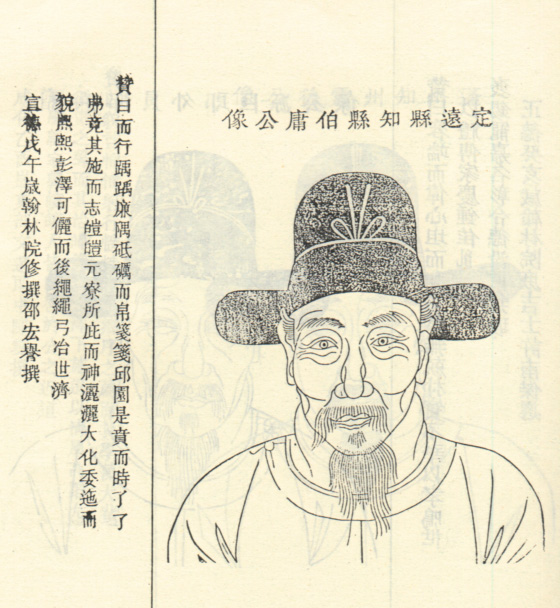 定遠縣知縣伯庸公像
贊曰而行踽踽廉隅砥礪而帛箋箋邱園是賁而時了了
弗竟其施而志皚皚元寮所庇而神灑灑大化委迤而
貌熈熙彭澤可儷而後繩繩弓冶世濟
宣德戊午嵗翰林院修撰邵宏譽撰